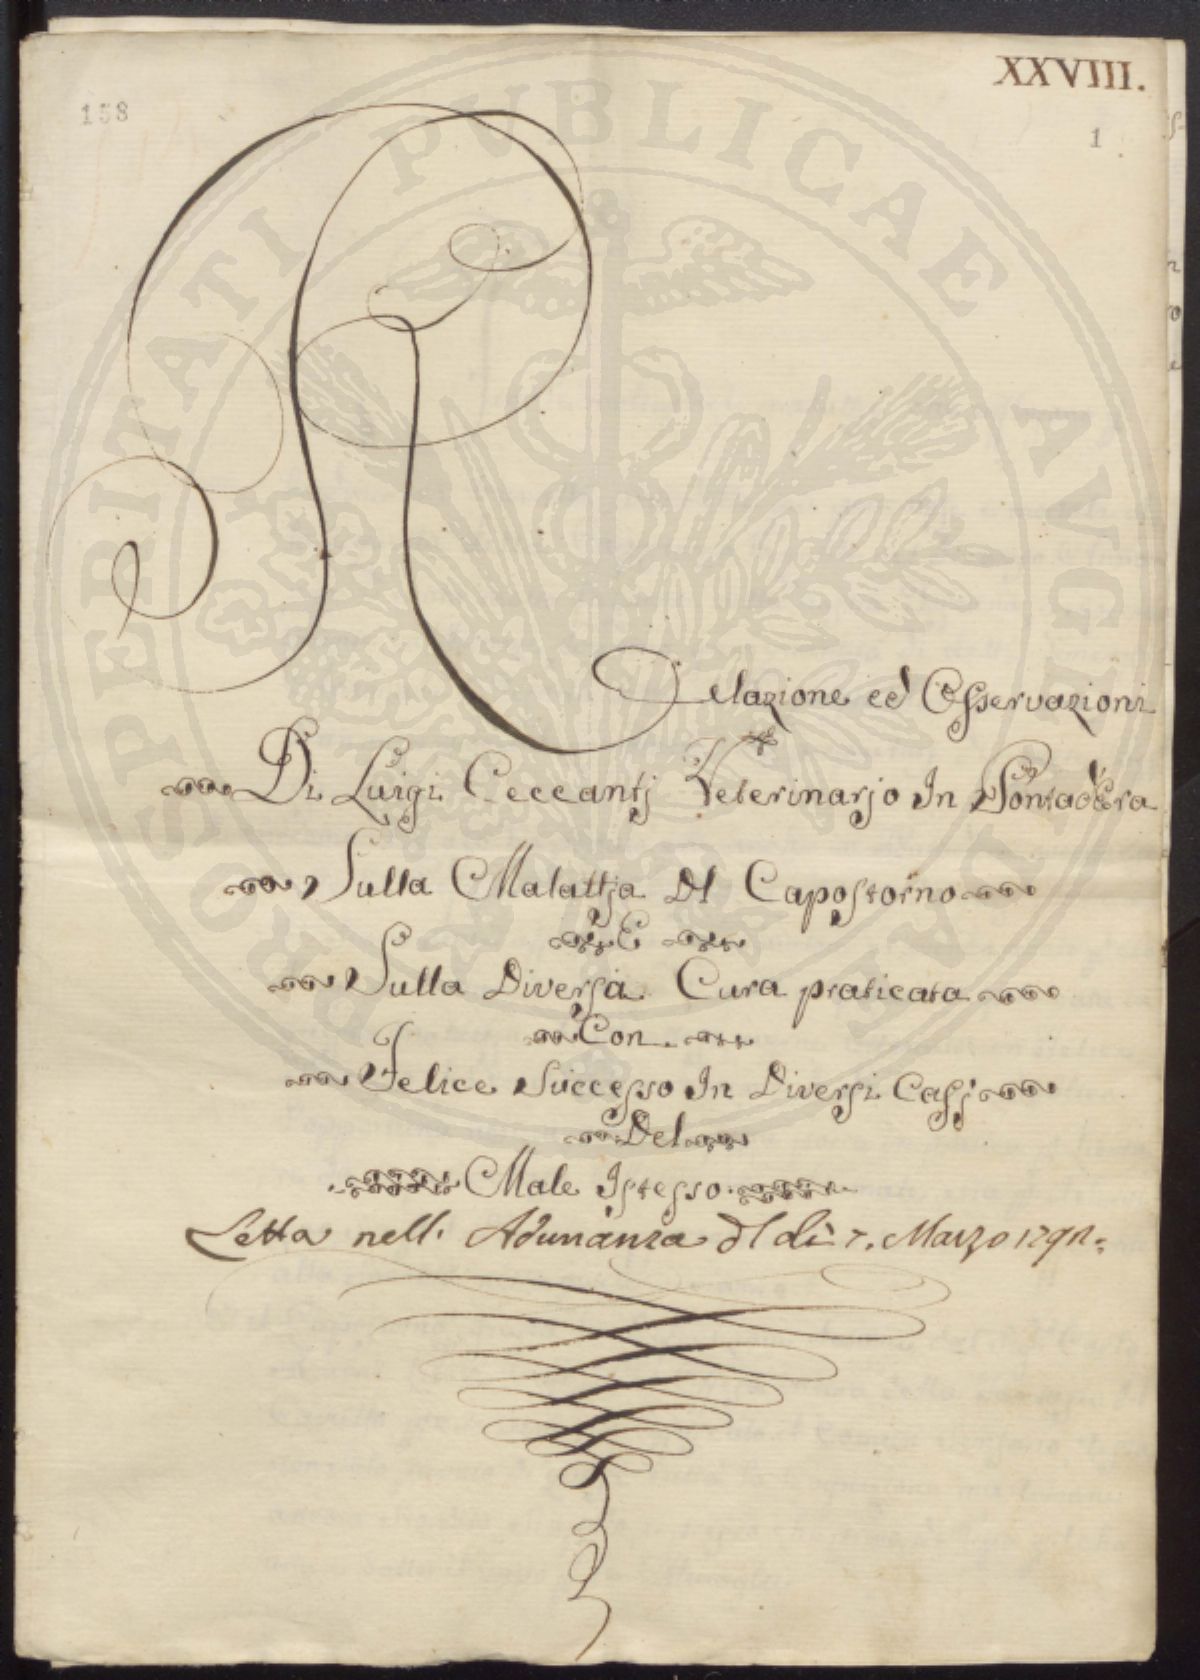 XXVIII.
158
1
Relazione ed Osservazioni
Di Luigi Ceccantj Veterinarjo In Pontadera
Sulla Malattja Dl Capostorno
E
Sulla Diversa Cura praticata
Con
Felice Successo In Diversi Casj
Del
Male Istesso.
Letta nell. Adunanza dl dì 7. Marzo
PROSPERITATI PUBLICAE AVGENDAE